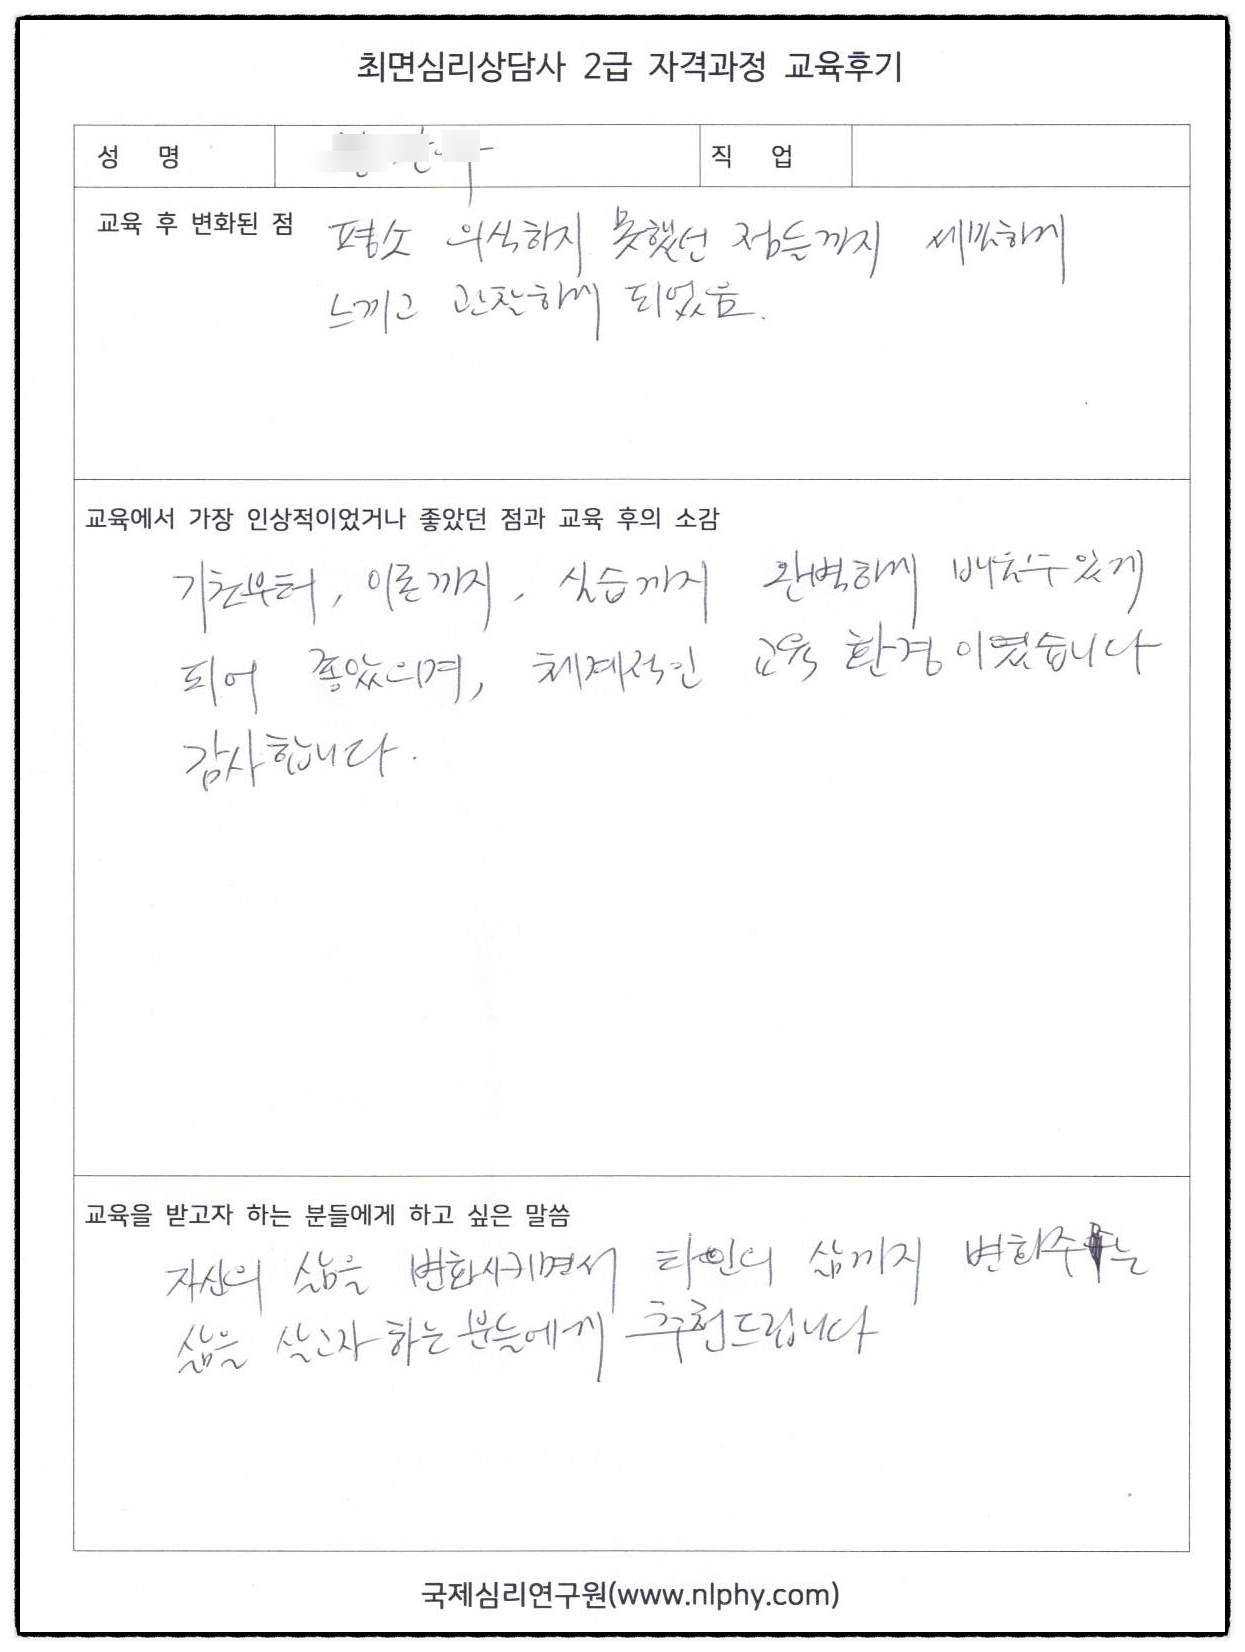 최면심리상담사 2급 자격과정 교육후기
성 명
직 업
교육 후 변화된 점 평소 의식하지 못했던 점들까지 세밀하게
느끼고 관찰하게 되었음.
교육에서 가장 인상적이었거나 좋았던 점과 교육 후의 소감
기초부터, 이론까지, 실습까지 완벽하게 배울수있게
되어 좋았으며, 체계적인 교육 환경이였습니다
감사합니다.
교육을 받고자 하는 분들에게 하고 싶은 말씀
자신의 삶을 변화시키면서 타인의 삶까지 변화주는
삶을 살고자 하는 분들에게 추천드립니다
국제심리연구원(www.nlphy.com)